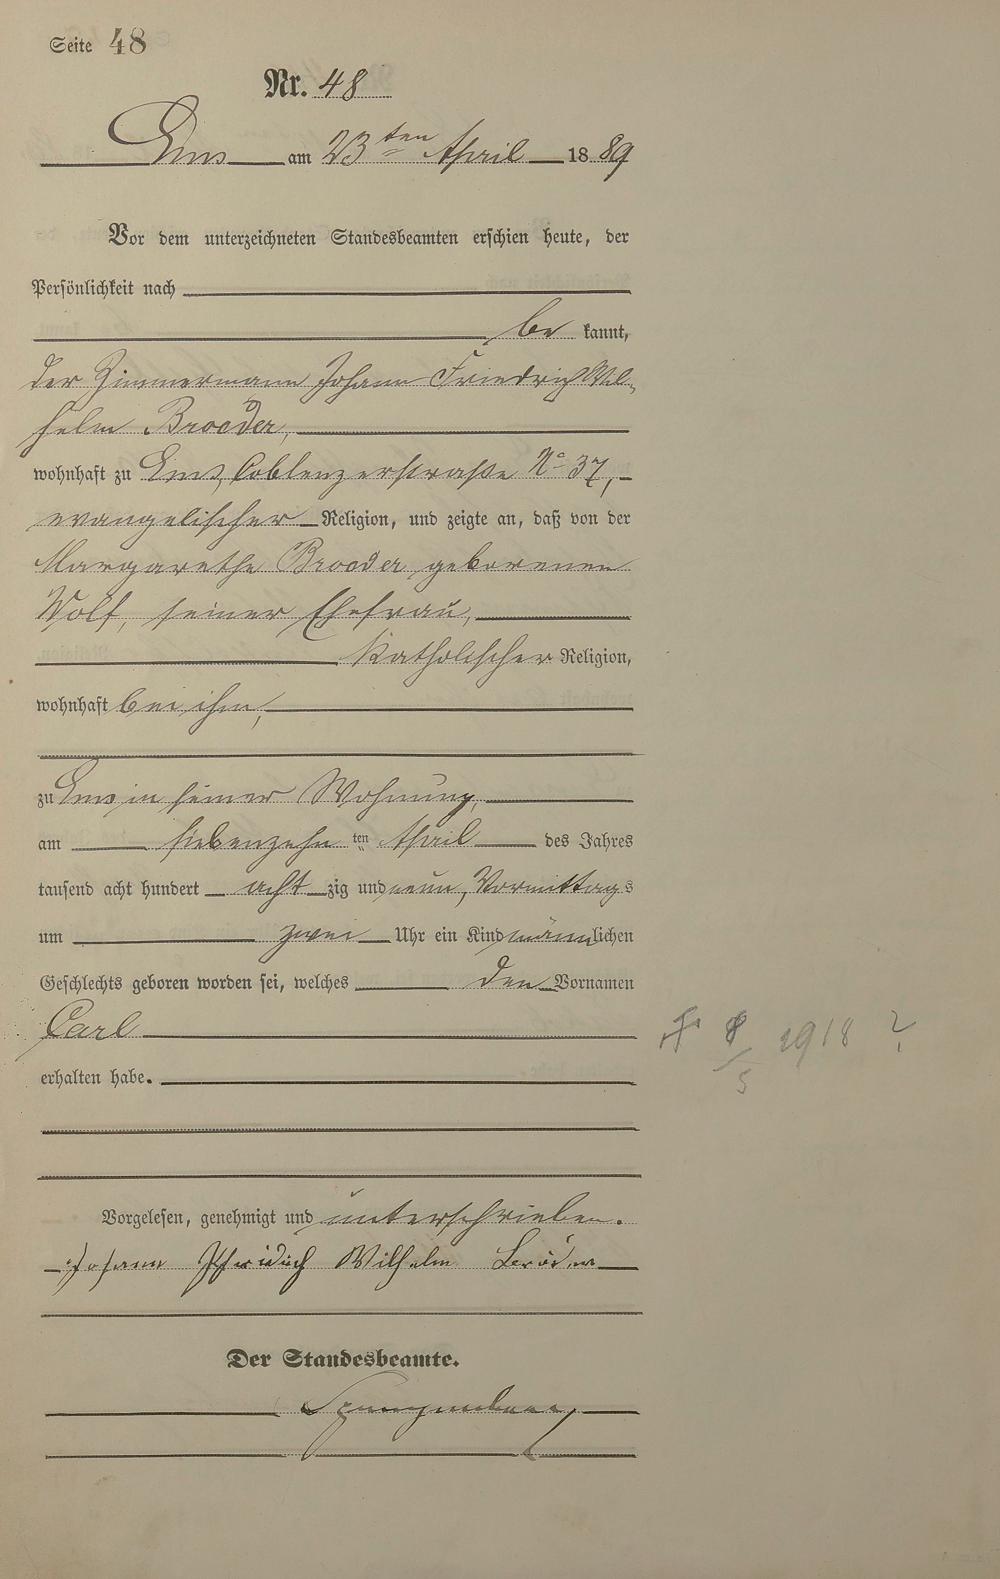 Seite 48
Nr. 48
Ems am 23ten April 1889
Vor dem unterzeichneten Standesbeamten erschien heute, der
Persönlichkeit nach
be kannt,
der Zimmermann Johann Friedrich Wil-
helm Broeder,
wohnhaft zu Ems, Coblenzerstraße No 37,
evangelischer Religion, und zeigte an, daß von der
Margarethe Broeder geborenen
Wolf, seiner Ehefrau,
katholischer Religion,
wohnhaft bei ihm,
zu Ems in seiner Wohnung,
am siebenzehn ten April des Jahres
tausend acht hundert acht zig und neun, Vormittags
um zwei Uhr ein Kind männlichen
Geschlechts geboren worden sei, welches den Vornamen
Carl
erhalten habe.
Vorgelesen, genehmigt und unterschrieben.
Johann Friedrich Wilhelm Bröder
Der Standesbeamte.
Spangenberg
8/5 1918 ?